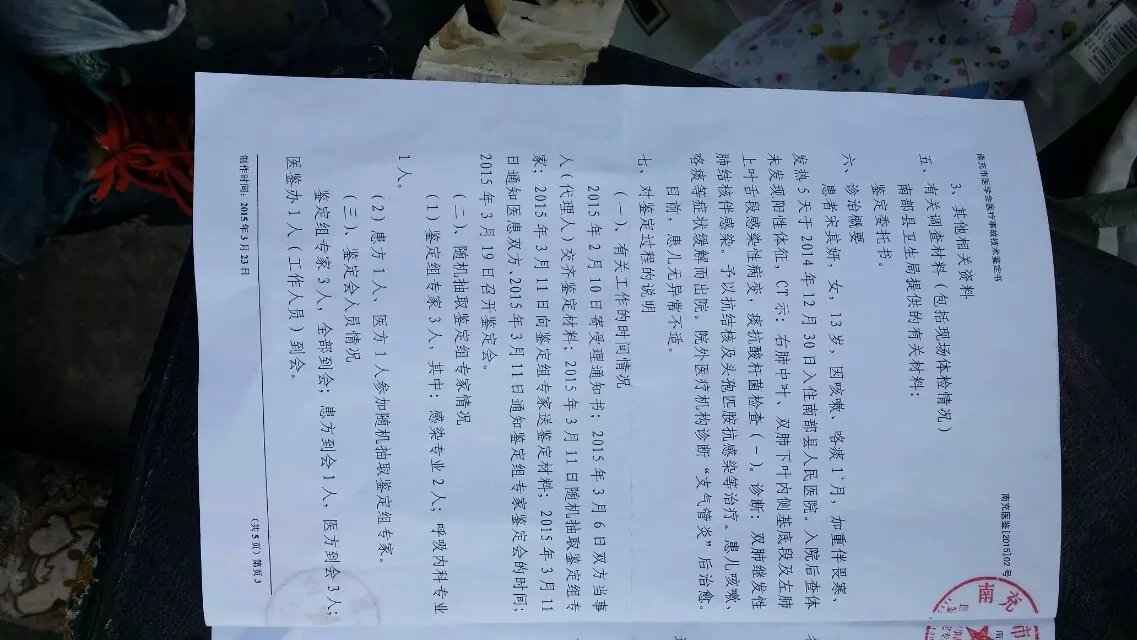 南充市医学会医疗事故技术鉴定书 南充医鉴[2015]02号
3、其他相关资料
五、有关调查材料（包括现场体检情况）
南部县卫生局提供的有关材料：
鉴定委托书。
六、诊治概要
患者宋其妍，女，13岁，因咳嗽、咯痰1+月，加重伴畏寒、
发热5天于2014年12月30日入住南部县人民医院。入院后查体
未发现阳性体征，CT示：右肺中叶、双肺下叶内侧基底段及左肺
上叶舌段感染性病变，痰抗酸杆菌检查（－）。诊断：双肺继发性
肺结核伴感染。予以抗结核及头孢匹胺抗感染等治疗。患儿咳嗽、
咯痰等症状缓解而出院。院外医疗机构诊断“支气管炎”后治愈。
目前，患儿无异常不适。
七、对鉴定过程的说明
（一）、有关工作的时间情况
2015年2月10日寄受理通知书；2015年3月6日双方当事
人（代理人）交齐鉴定材料；2015年3月11日随机抽取鉴定组专
家；2015年3月11日向鉴定组专家送鉴定材料；2015年3月11
日通知医患双方、2015年3月11日通知鉴定组专家鉴定会的时间；
2015年3月19日召开鉴定会。
（二）、随机抽取鉴定组专家情况
（1）鉴定组专家3人，其中：感染专业2人；呼吸内科专业
1人。
（2）患方1人、医方1人参加随机抽取鉴定组专家。
（三）、鉴定会人员情况
鉴定组专家3人，全部到会；患方到会1人，医方到会3人；
医鉴办1人（工作人员）到会。
制作时间：2015年3月23日 （共5页）第页3
南充市